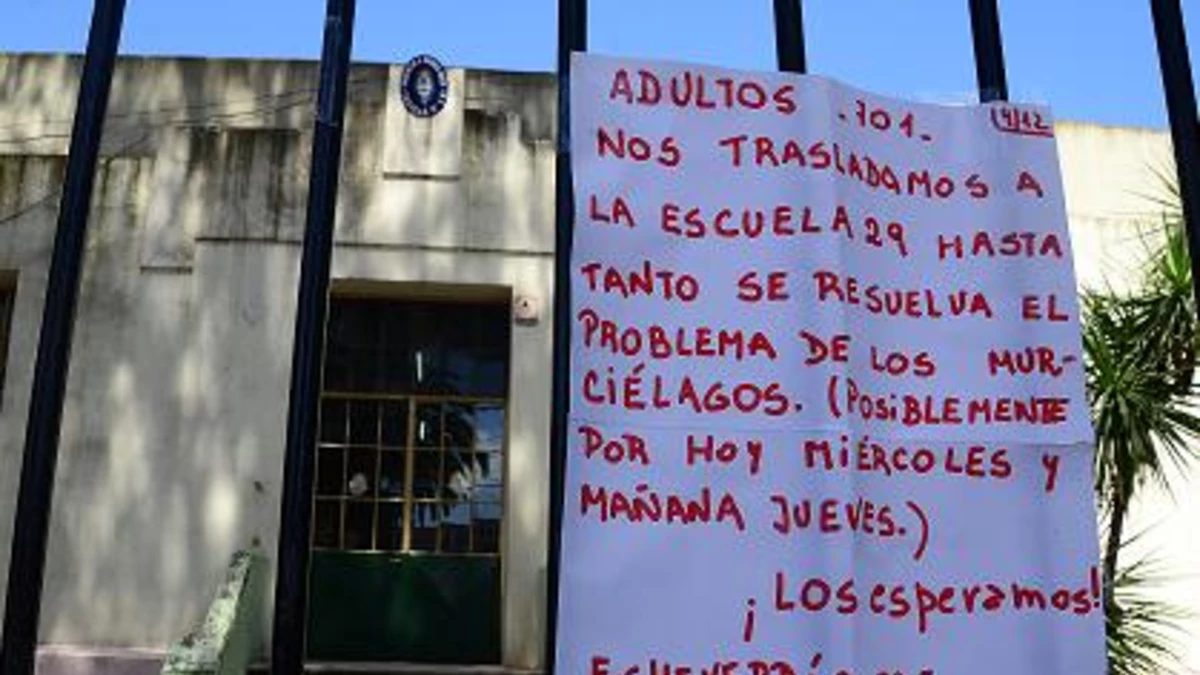 ADULTOS -701- 4/12
NOS TRASLADAMOS A
LA ESCUELA 29 HASTA
TANTO SE RESUELVA EL
PROBLEMA DE LOS MUR-
CIÉLAGOS. (POSIBLEMENTE
POR HOY MIÉRCOLES Y
MAÑANA JUEVES.)
¡LOS esperamos!